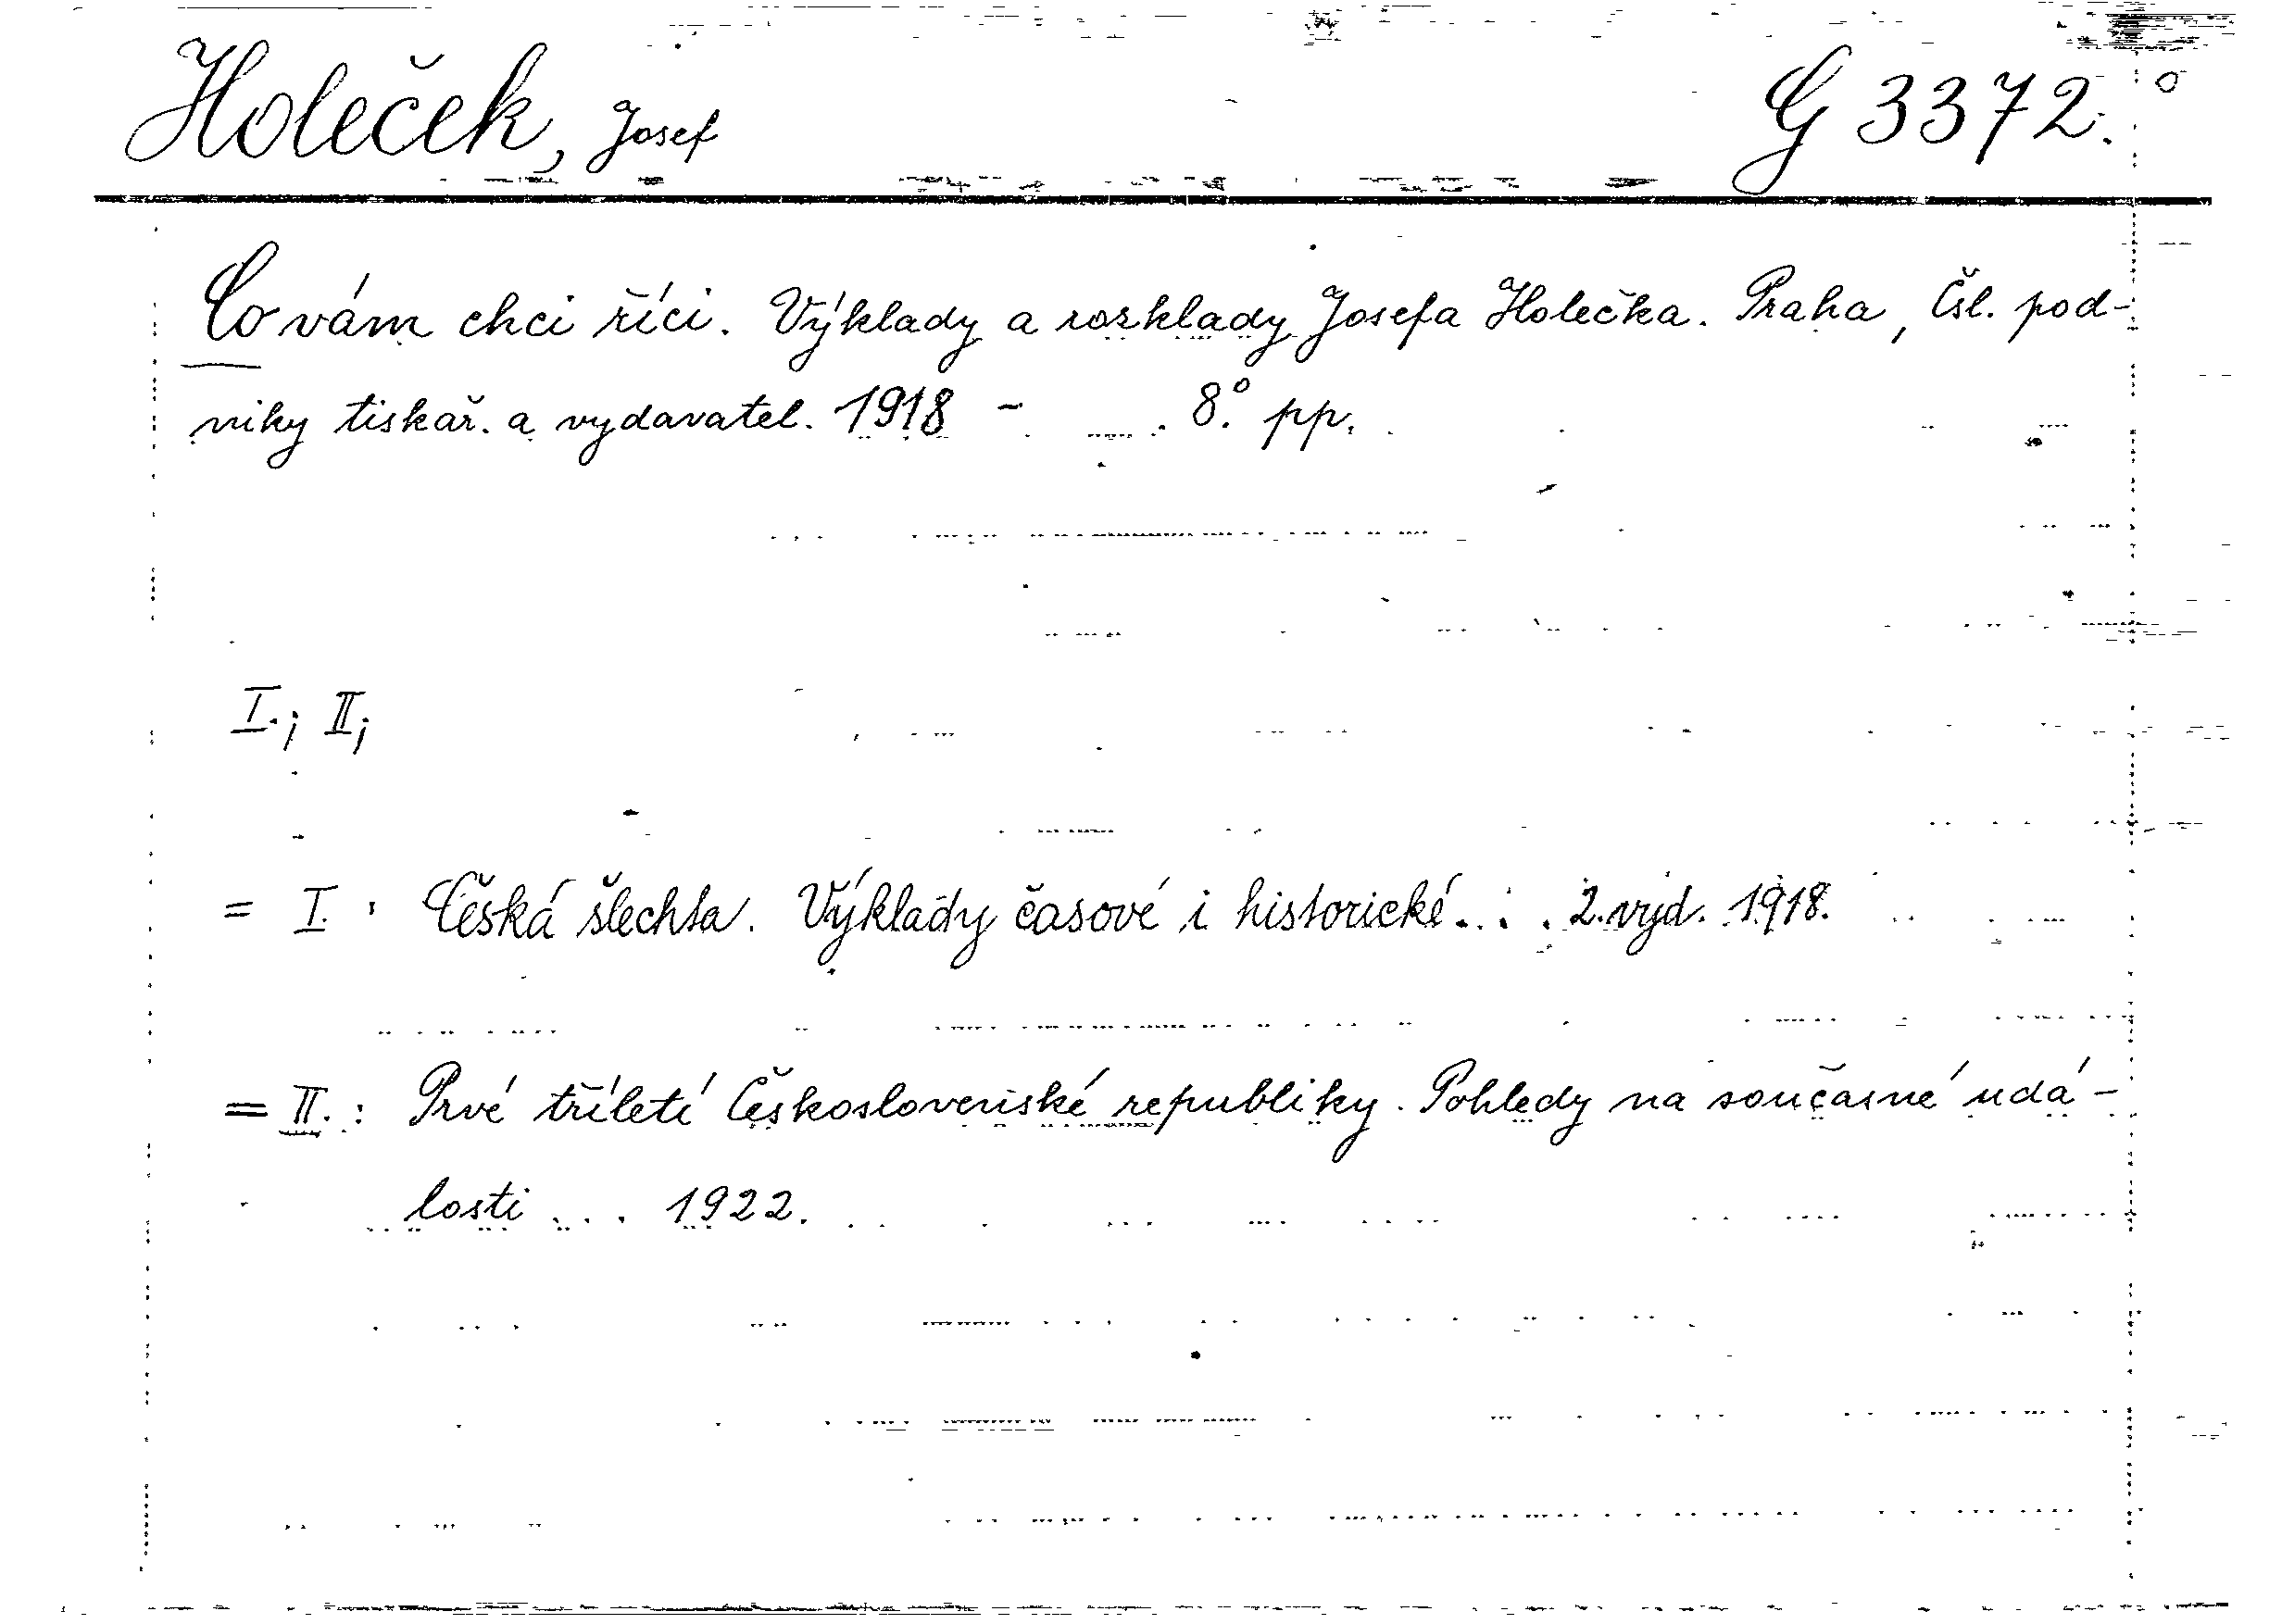 Holeček, Josef G 3372.
Co vám chci říci. Výklady a rozklady Josefa Holečka. Praha, Čsl. pod-
niky tiskař. a vydavatel. 1918 - . 8.° pp.
I.; II;
= I. : Česká šlechta. Výklady časové i historické... 2. vyd. 1918.
= II. : Prvé tříletí Československé republiky. Pohledy na současné udá-
losti ... 1922.